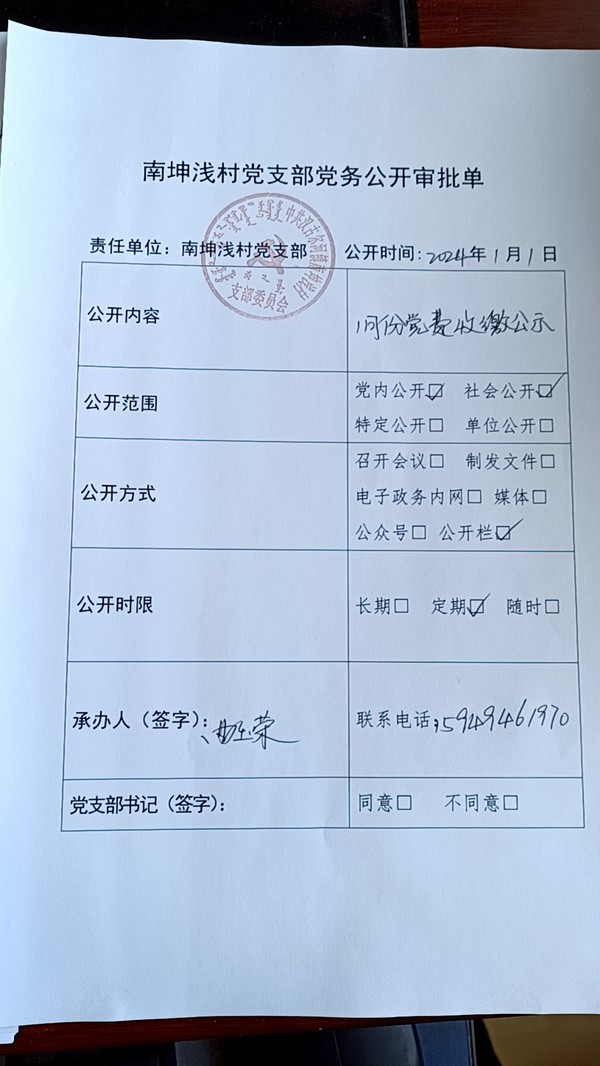 南坤浅村党支部党务公开审批单
责任单位：南坤浅村党支部 公开时间：2024年1月1日
支部委员会
公开内容 1月份党费收缴公示
公开范围 党内公开☑ 社会公开☑
特定公开□ 单位公开□
公开方式 召开会议□ 制发文件□
电子政务内网□ 媒体□
公众号□ 公开栏☑
公开时限 长期□ 定期☑ 随时□
承办人（签字）： 荣 联系电话：15949461970
党支部书记（签字）： 同意□ 不同意□